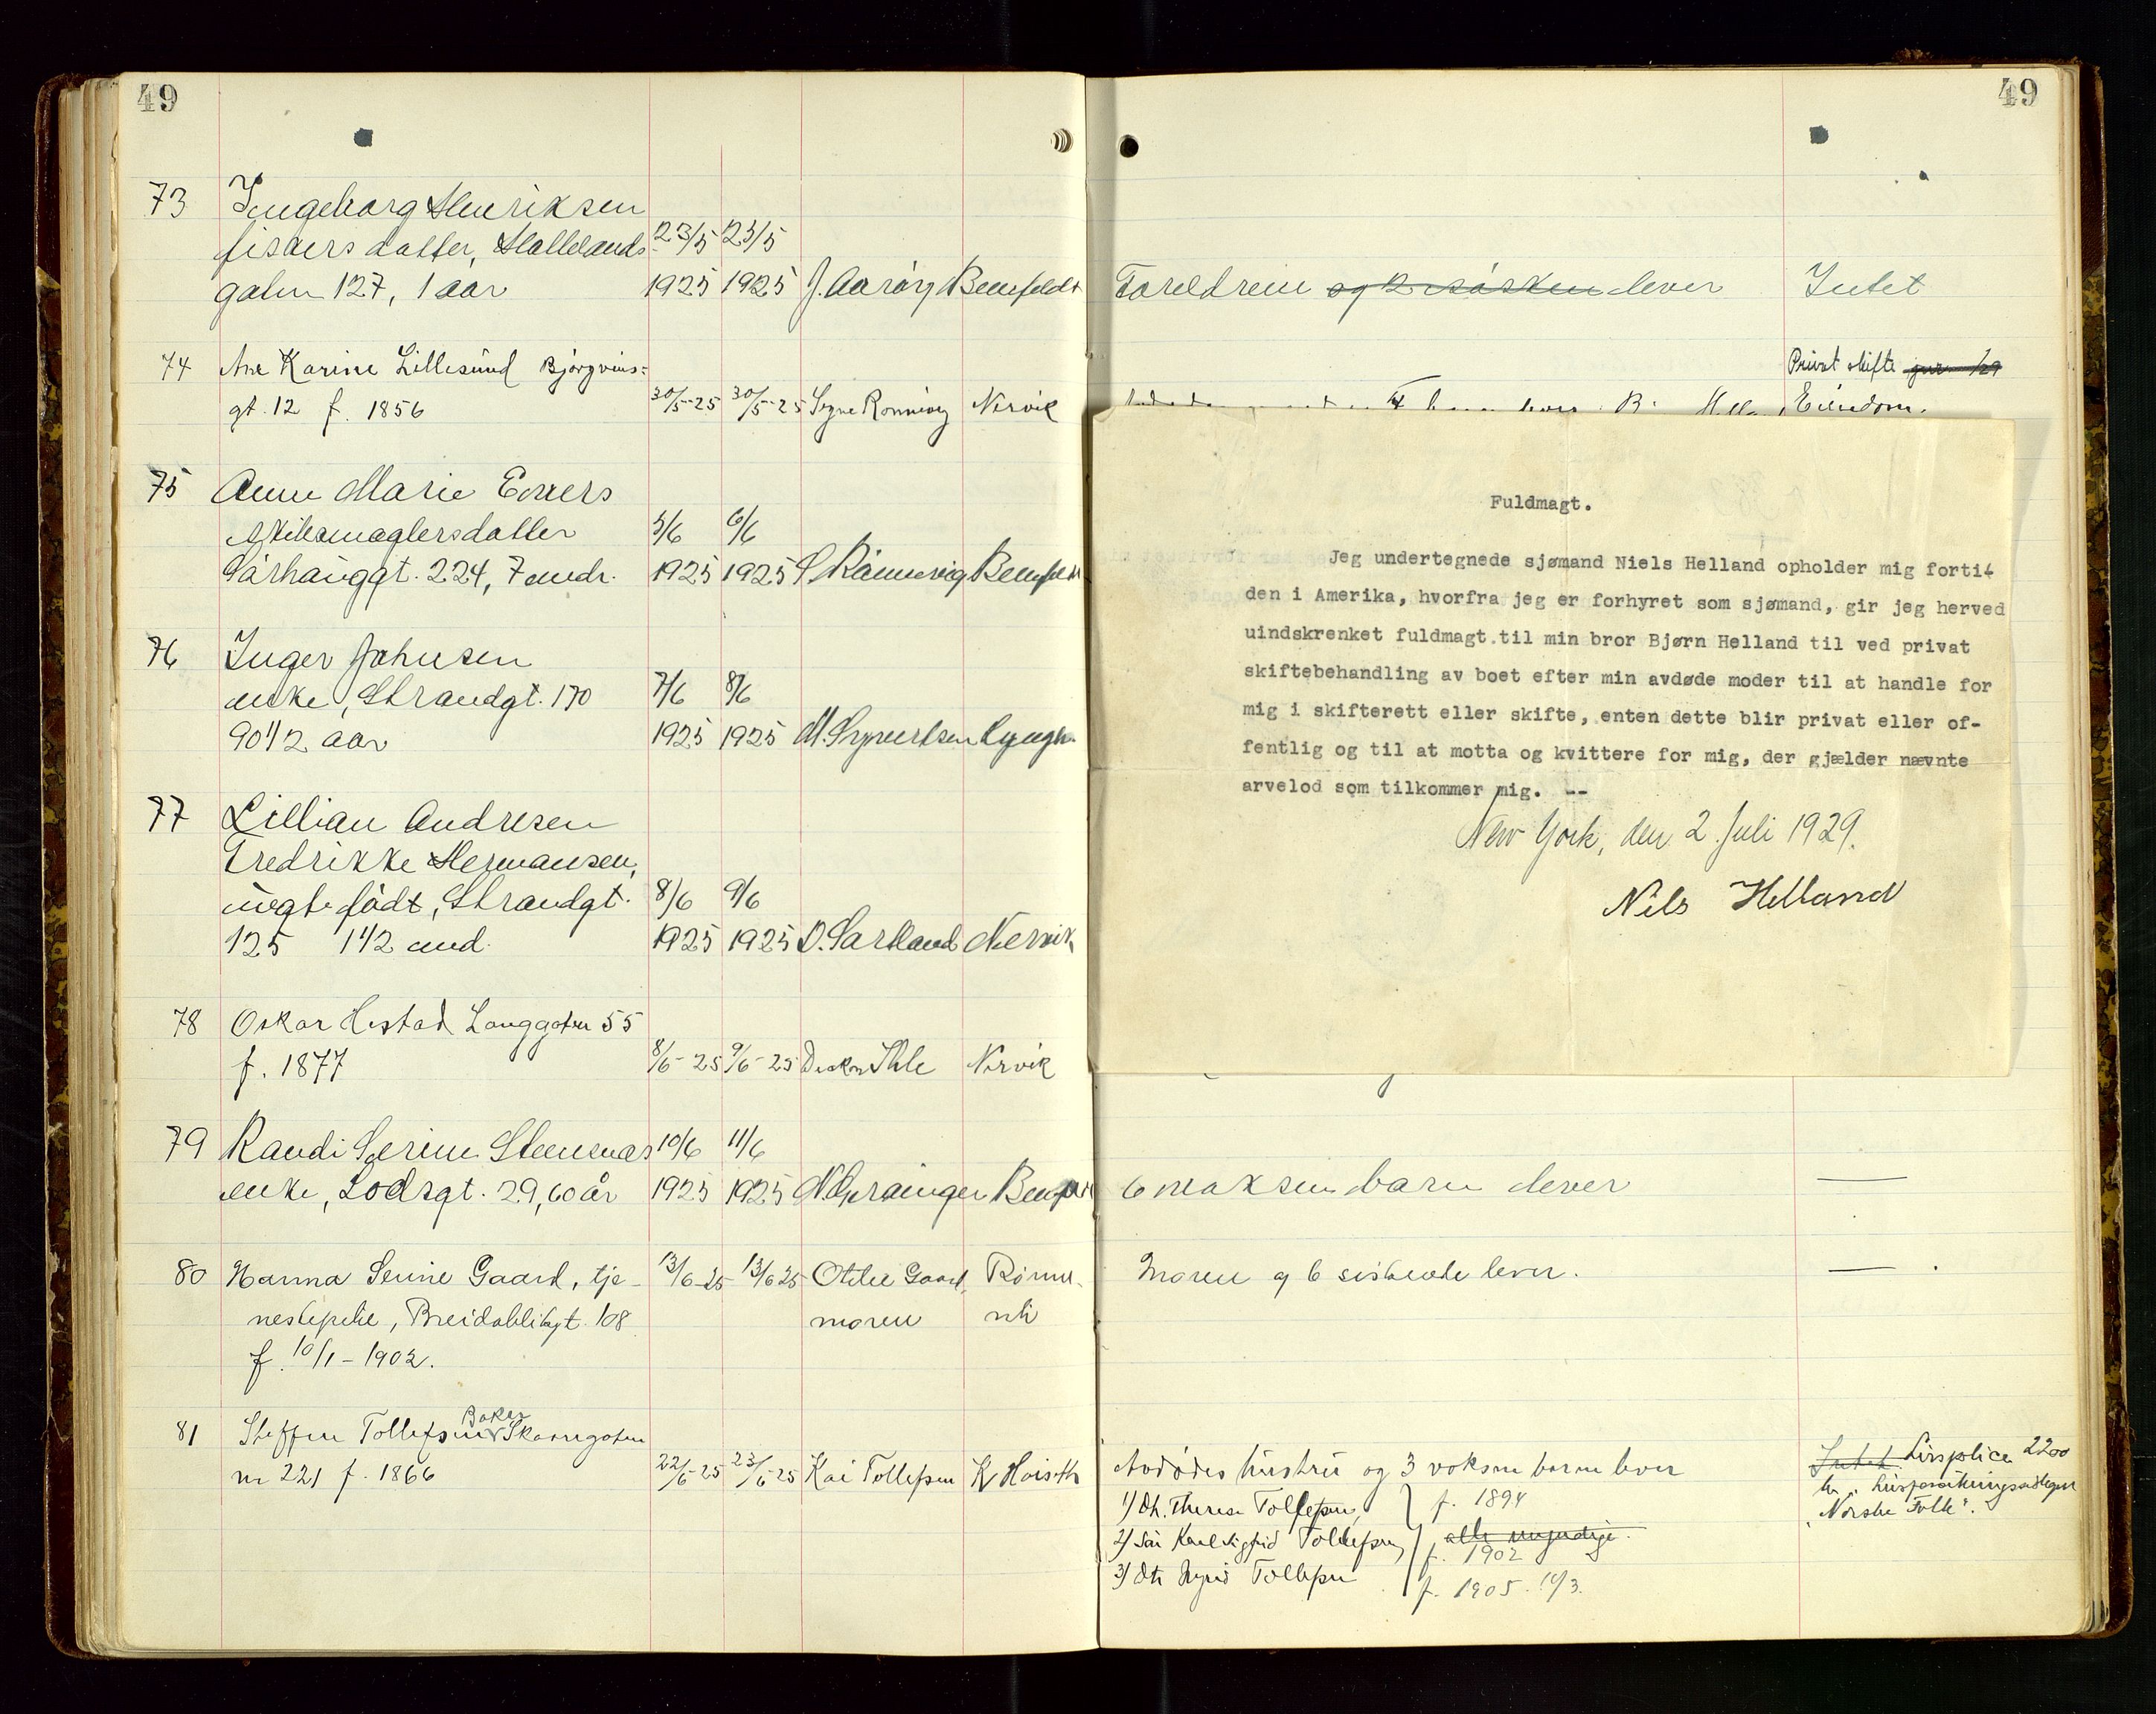 49
73 Ingeborg Henriksen
fiskers datter, Hallelands 23/5 23/5
gaten 127, 1 aar 1925 1925 J. Aarøy
74 Ane Karine Lillesund Bjørgvins=
gt. 12 f. 1856 30/5-25 30/5-25 Signe Rønnevig Nervik
75 Anne Marie
datter 5/6 6/6
gt. 224, 7 mdr. 1925 1925 S. Rønnevig
76 Inger Johnsen
enke, Strandgt. 170 7/6 8/6
90 1/2 aar 1925 1925 M. Sivertsen
77 Lillian Andresen
Fredrikke Hermansen,
født, Strandgt. 8/6 9/6
125 1 1/2 md. 1925 1925 Nervik
78 Oskar Langgaten 55
f. 1877 8/6-25 9/6-25 Ihle Nervik
79 Randi Serine Steensnæs 10/6 11/6
enke, Lodsgt. 29, 60 år 1925 1925
80 Hanna Serine Gaard, tje- 13/6-25 13/6 25 Otilie Gaard,
nestepike, Breidablikgt. 108 moren
f. 10/1-1902.
Baker
81 Steffen Tollefsen Skaaregaten
nr 221 f. 1866 22/6-25 23/6-25 Kai Tollefsen K
49
Foreldrene og 2 søsken lever Intet
Privat skifte
Eiendom.
Fuldmagt.
Jeg undertegnede sjømand Niels Helland opholder mig forti-
den i Amerika, hvorfra jeg er forhyret som sjømand, gir jeg herved
uindskrenket fuldmagt til min bror Bjørn Helland til ved privat
skiftebehandling av boet efter min avdøde moder til at handle for
mig i skifterett eller skifte, enten dette blir privat eller of-
fentlig og til at motta og kvittere for mig, der gjælder nævnte
arvelod som tilkommer mig. --
New York, den 2. Juli 1929.
Nils Helland
6 voksne barn lever —
Moren og 6 søskende lever. —
Avdødes hustru og 3 voksne barn lever Intet Livspolice 2200
1) Dtr. Therese Tollefsen, f. 1894 kr. i livsforsikringsselskapet
2) Søn Karl Sigfrid Tollefsen, alle umyndige. f. 1902 "Norske Folk".
3) Dtr Tollefsen f. 1905. 14/3.